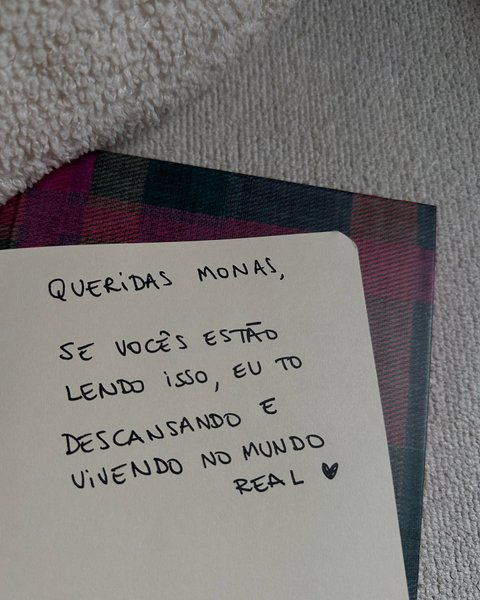 QUERIDAS MONAS,
SE VOCÊS ESTÃO
LENDO ISSO, EU TO
DESCANSANDO E
VIVENDO NO MUNDO
REAL ♥